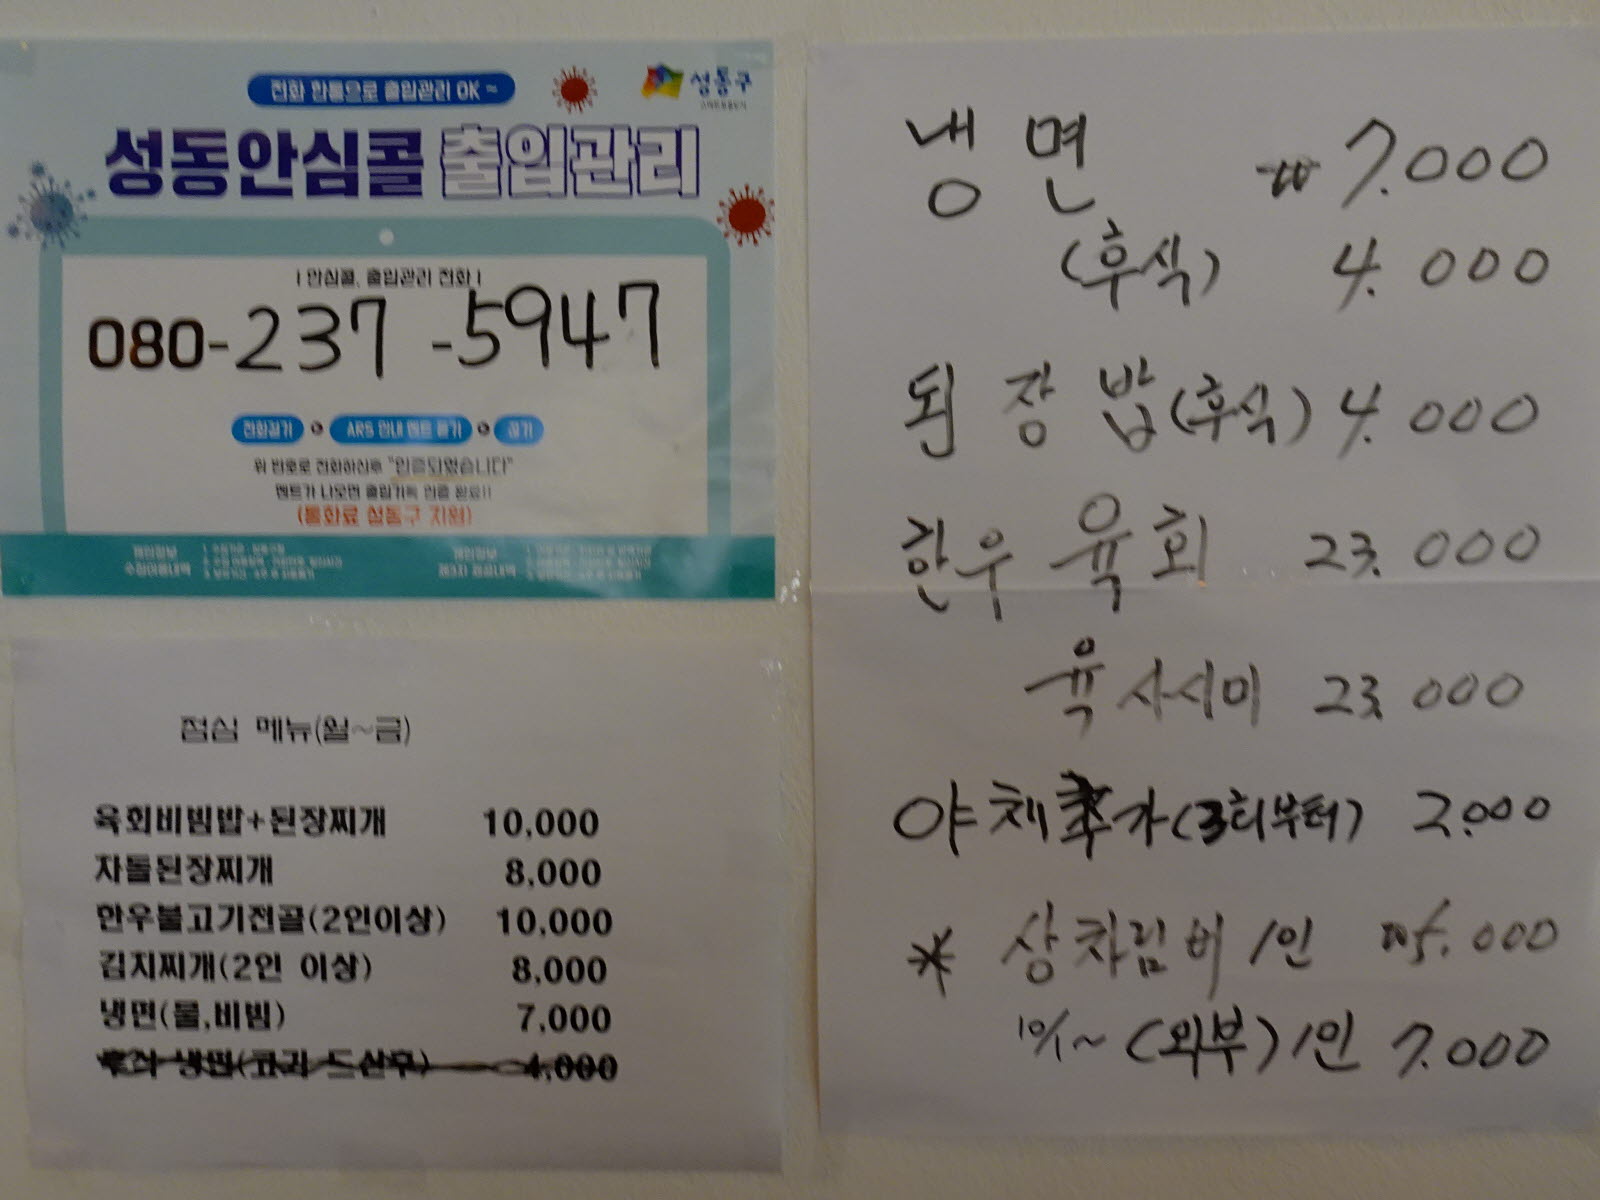 전화 한통으로 출입관리 OK ~
성동구
성동안심콜 출입관리
| 안심콜, 출입관리 전화 |
080-237-5947
전화걸기
ARS 안내 멘트 듣기
끊기
위 번호로 전화하신후 "인증되었습니다"
멘트가 나오면 출입기록 인증 완료!!
(통화료 성동구 지원)
개인정보
수집이용내역
개인정보
제3자 제공내역
점심 메뉴(월~금)
육회비빔밥+된장찌개 10,000
차돌된장찌개 8,000
한우불고기전골(2인이상) 10,000
김치찌개(2인 이상) 8,000
냉면(물,비빔) 7,000
후식 냉면(고기 드신후) 4,000
냉면 ₩7.000
(후식) 4.000
된장밥(후식) 4.000
한우육회 23.000
육사시미 23.000
야채추가(3회부터) 2.000
* 상차림비 1인 ₩5.000
10/1~ (외부) 1인 7.000